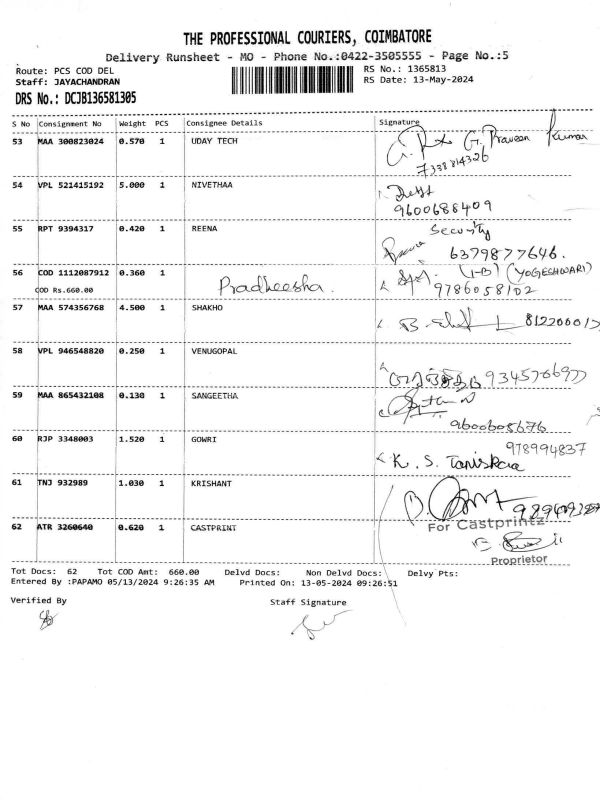 THE PROFESSIONAL COURIERS, COIMBATORE
Delivery Runsheet - MO - Phone No.:0422-3505555 - Page No.:5
Route: PCS COD DEL RS No.: 1365813
Staff: JAYACHANDRAN RS Date: 13-May-2024
DRS No.: DCJB136581305
S No Consignment No Weight PCS Consignee Details Signature
53 MAA 300823024 0.570 1 UDAY TECH G. Praveen Kumar
7338814326
54 VPL 521415192 5.000 1 NIVETHAA
9600688409
55 RPT 9394317 0.420 1 REENA Security
6379877646.
56 COD 1112087912 0.360 1 Pradheesha. (1-B) (YOGESHWARI)
COD Rs.660.00 9786058102
57 MAA 574356768 4.500 1 SHAKHO
58 VPL 946548820 0.250 1 VENUGOPAL
9345706977
59 MAA 865432108 0.130 1 SANGEETHA
9600605676
60 RJP 3348003 1.520 1 GOWRI 978994837
K. S. Taniskaa
61 TNJ 932989 1.030 1 KRISHANT
62 ATR 3260640 0.620 1 CASTPRINT For Castprintz
Proprietor
Tot Docs: 62 Tot COD Amt: 660.00 Delvd Docs: Non Delvd Docs: Delvy Pts:
Entered By :PAPAMO 05/13/2024 9:26:35 AM Printed On: 13-05-2024 09:26:51
Verified By Staff Signature